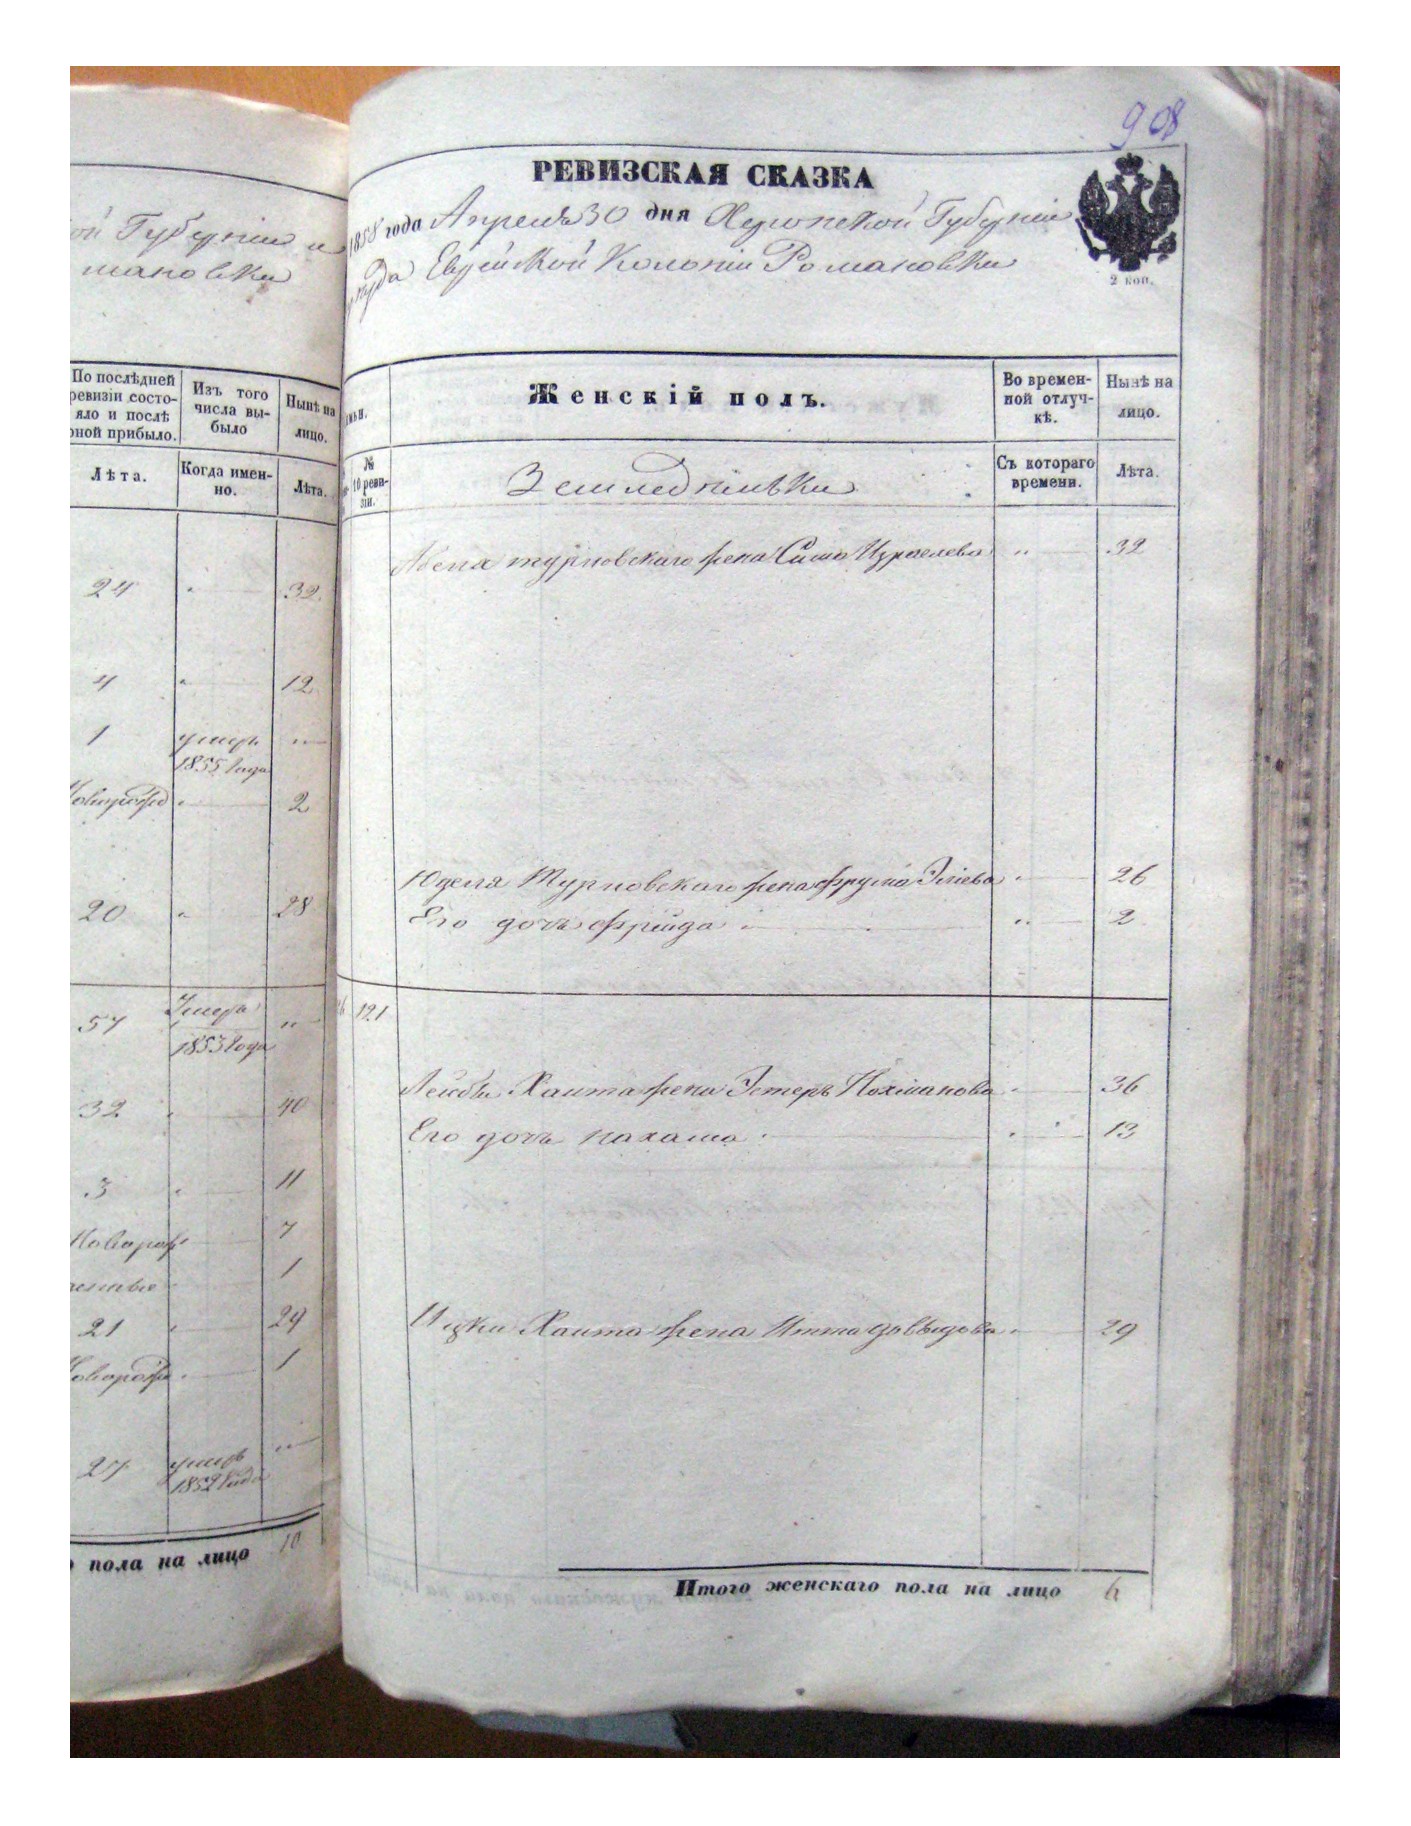 ой Губерніи и
мановки
По послѣдней
ревизіи состо-
яло и послѣ
оной прибыло.
Изъ того
числа вы-
было
Нынѣ на
лицо.
Лѣта.
Когда имен-
но.
Лѣта.
24 " 32
4 " 12
1 умеръ "
1855 года
Новорожд " 2
20 " 28
57 Умеръ "
1853 года
32 " 40
3 " 11
Новорож 7
денные 1
21 " 29
Новорож " 1
27 умеръ "
1852 года
пола на лицо 10
908
РЕВИЗСКАЯ СКАЗКА
1858 года Апреля 30 дня Херсонской Губерніи
уѣзда Еврейской Колоніи Романовки
2 коп.
Женскій полъ.
Во времен-
ной отлуч-
кѣ.
Нынѣ на
лицо.
№
10 реви-
зіи.
Земледѣльки
Съ котораго
времени.
Лѣта.
Турновскаго жена Сима Израелева " 32
Юделя Турновскаго жена Фрума " 26
Его дочь Фрейда " 2
121
Лейбы Хаита жена Эстеръ Нохиманова " 36
Его дочь Нахама " 13
Ицки Хаита жена Итта Довыдова " 29
Итого женскаго пола на лицо 6